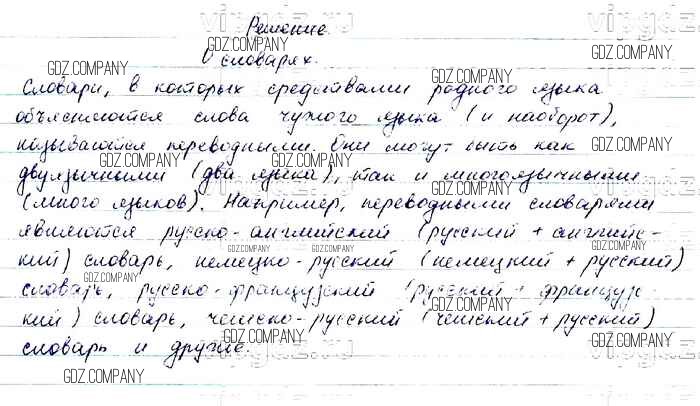 Решение.
О словарях.
Словари, в которых средствами родного языка
объясняются слова чужого языка (и наоборот),
называются переводными. Они могут быть как
двуязычными (два языка), так и многоязычными
(много языков). Например, переводными словарями
являются русско-английский (русский + английс-
кий) словарь, немецко-русский (немецкий + русский)
словарь, русско-французский (русский + француз-
кий) словарь, чешско-русский (чешский + русский)
словарь и другие.
GDZ.COMPANY
vipgdz.ru